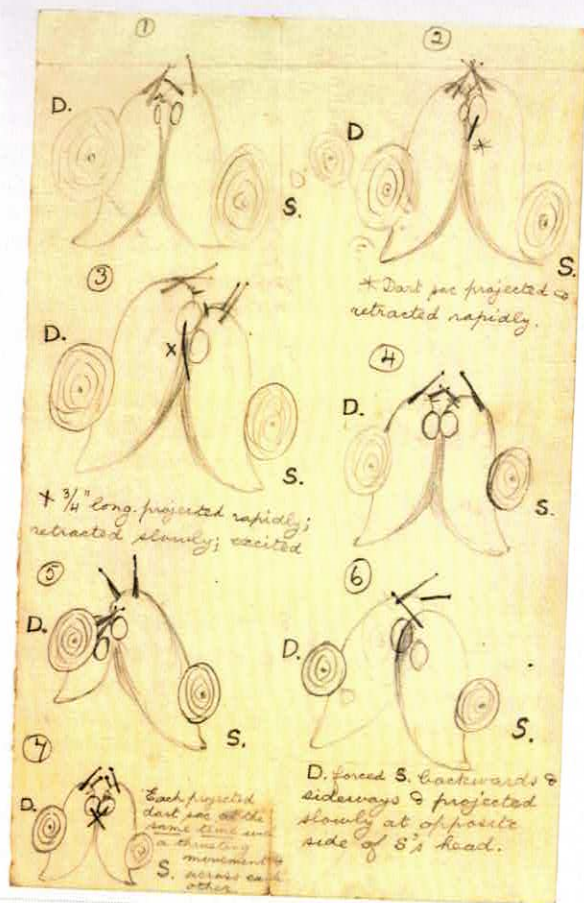 1
D.
S.
2
D
*
S.
* Dart sac projected &
retracted rapidly.
3
D.
x
S.
* 3/4" long. projected rapidly;
retracted slowly; excited
4
D.
S.
5
D.
S.
6
D.
S.
D. forced S. backwards &
sideways & projected
slowly at opposite
side of S's head.
7
D.
S.
Each projected
dart sac at the
same time with
a thrusting
movement &
across each
other